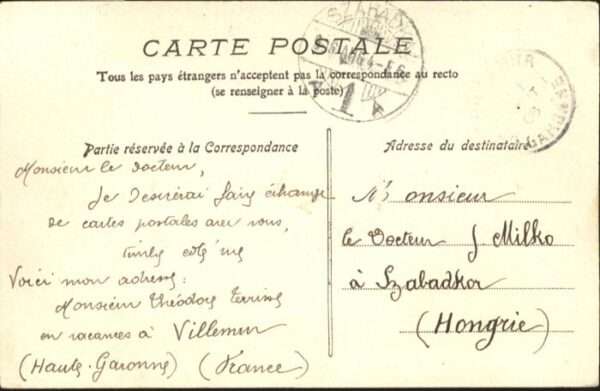 CARTE POSTALE
Tous les pays étrangers n'acceptent pas la correspondance au recto
(se renseigner à la poste)
Partie réservée à la Correspondance
Monsieur le docteur,
Je désirerai faire échange
de cartes postales avec vous,
timbre côté vue
Voici mon adresse:
Monsieur Théodore
en vacances à Villemur
(Haute-Garonne) (France)
Adresse du destinataire
Monsieur
le Docteur J. Milko
à Szabadka
(Hongrie)